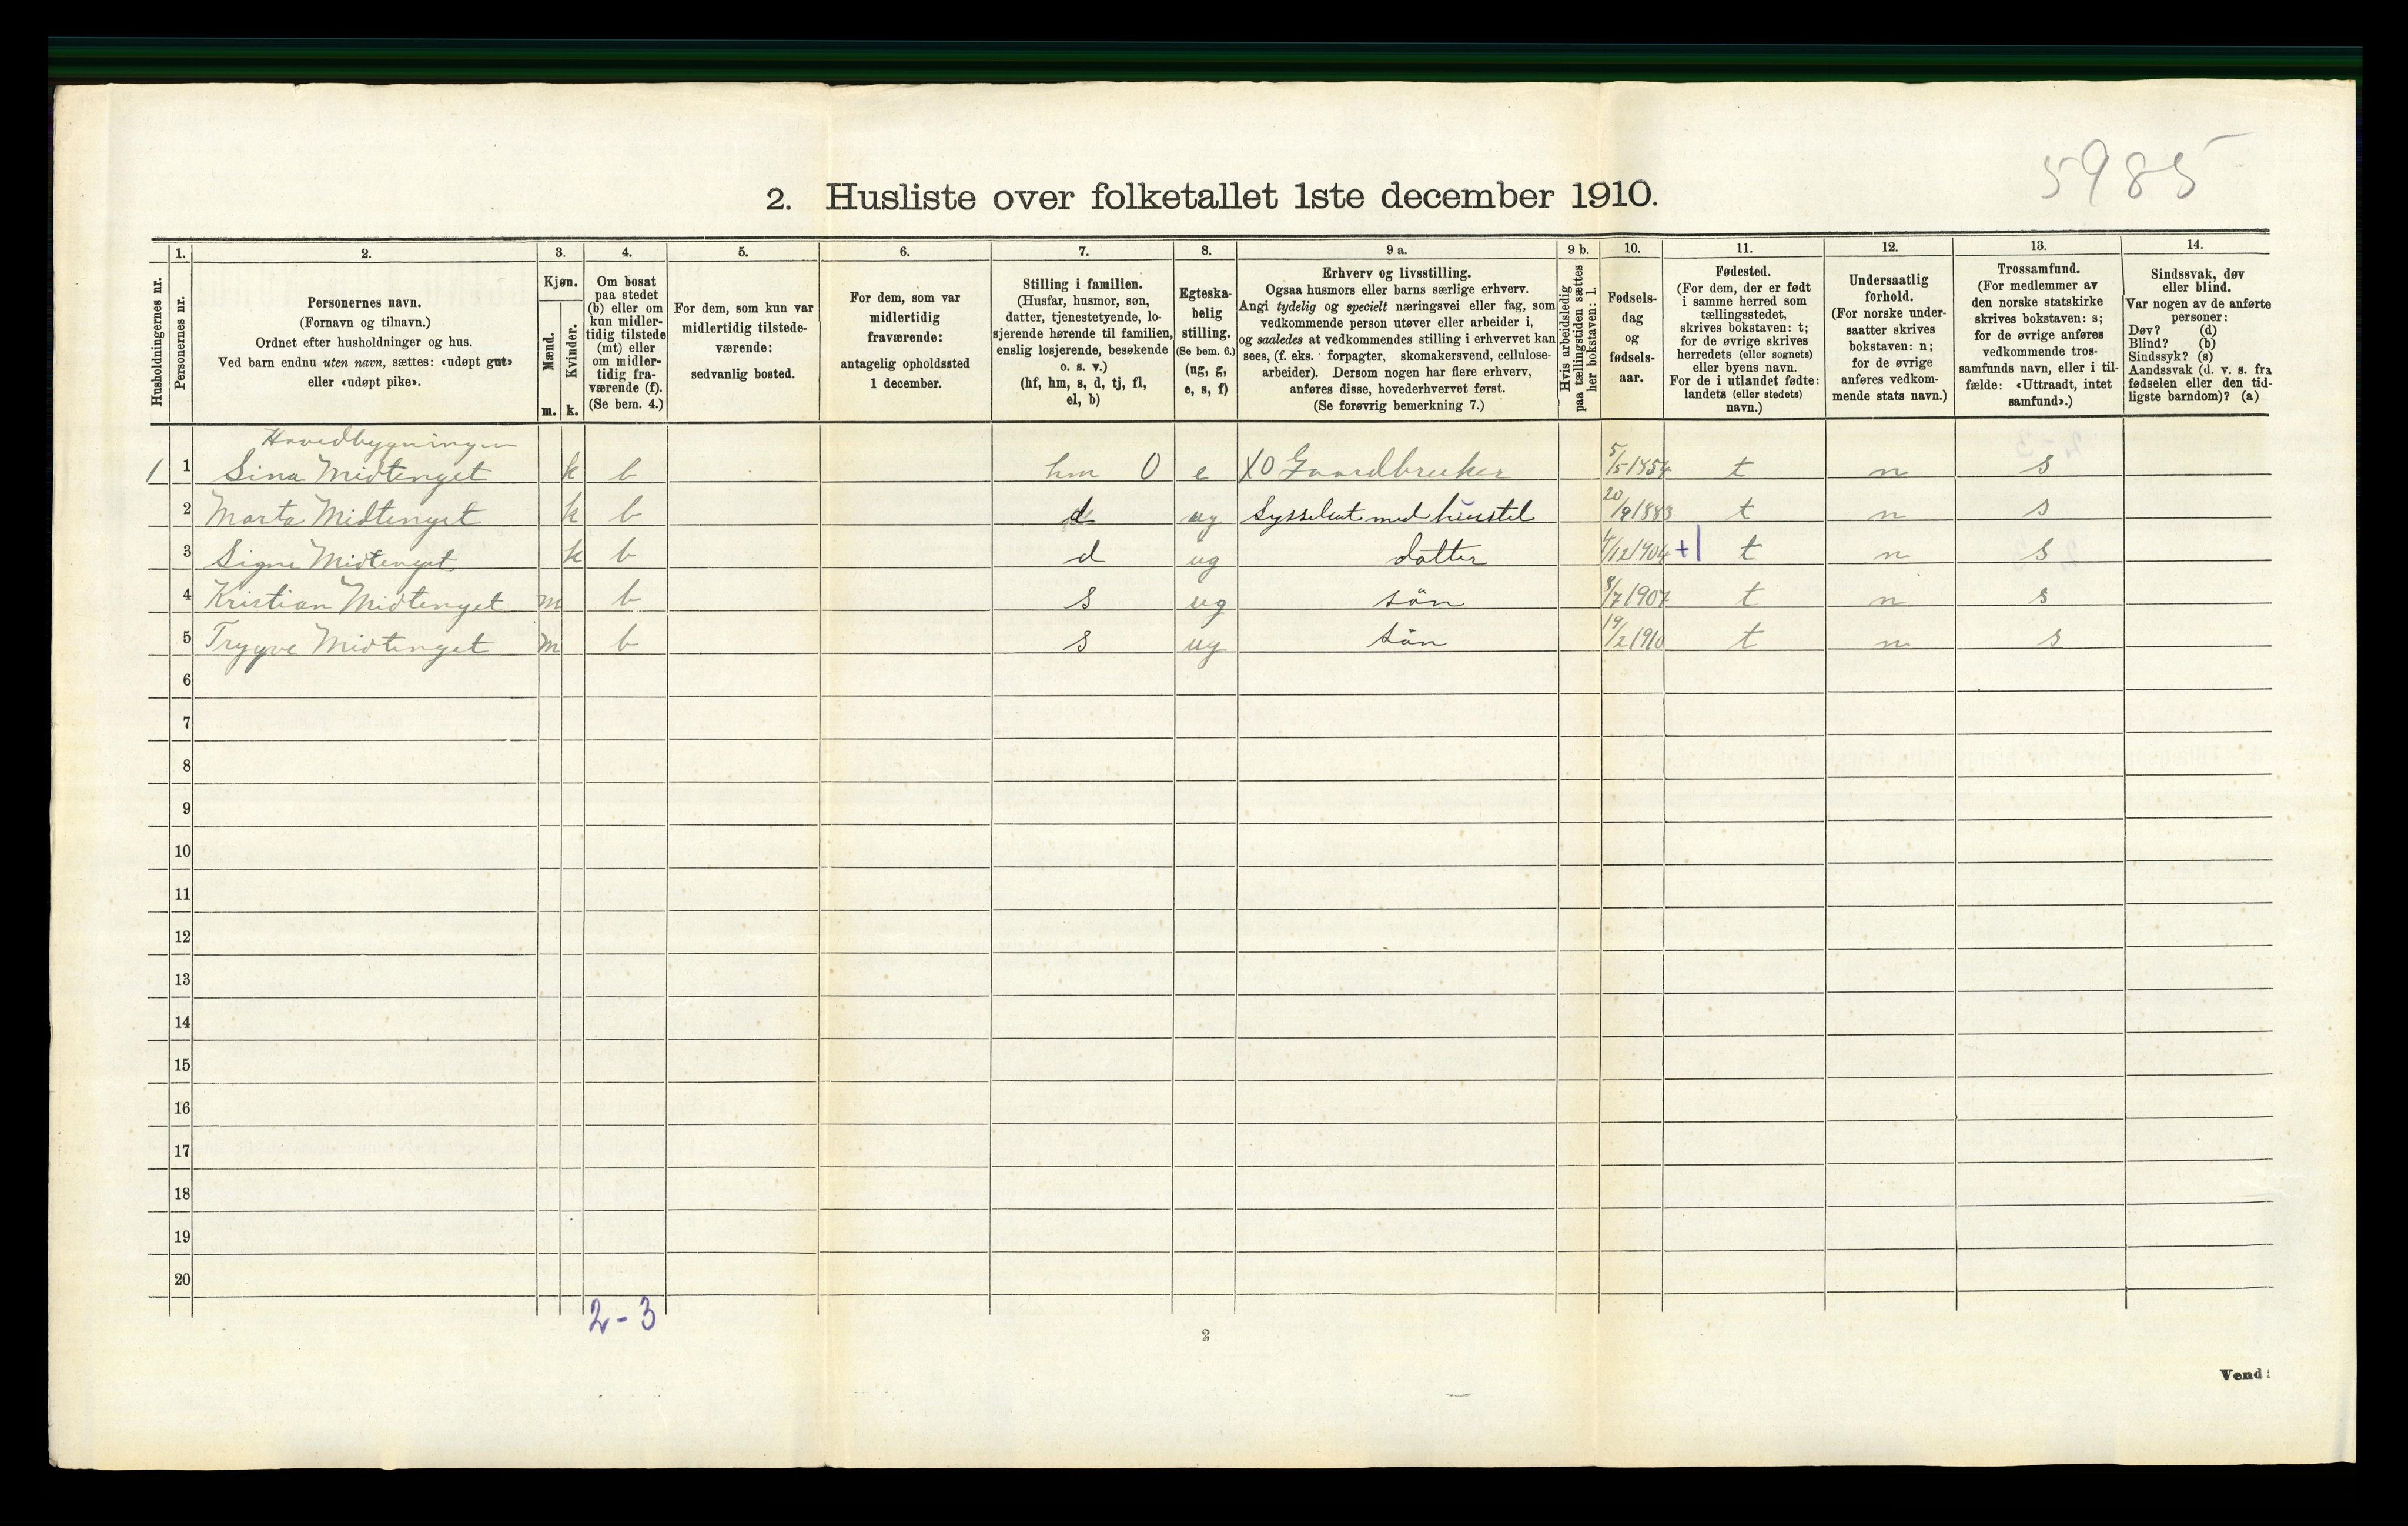 5985
2. Husliste over folketallet 1ste december 1910.
Husholdningernes nr.
1.
Personernes nr.
2.
Personernes navn.
(Fornavn og tilnavn.)
Ordnet efter husholdninger og hus.
Ved barn endnu uten navn, sættes: «udøpt gut»
eller «udøpt pike».
3.
Kjøn.
Mænd.
Kvinder.
m. k.
4.
Om bosat
paa stedet
(b) eller om
kun midler-
tidig tilstede
(mt) eller
om midler-
tidig fra-
værende (f).
(Se bem. 4.)
5.
For dem, som kun var
midlertidig tilstede-
værende:
sedvanlig bosted.
6.
For dem, som var
midlertidig
fraværende:
antagelig opholdssted
1 december.
7.
Stilling i familien.
(Husfar, husmor, søn,
datter, tjenestetyende, lo-
sjerende hørende til familien,
enslig losjerende, besøkende
o. s. v.)
(hf, hm, s, d, tj, fl,
el, b)
8.
Egteska-
belig
stilling.
(Se bem. 6.)
(ug, g,
e, s, f)
9 a.
Erhverv og livsstilling.
Ogsaa husmors eller barns særlige erhverv.
Angi tydelig og specielt næringsvei eller fag, som
vedkommende person utøver eller arbeider i,
og saaledes at vedkommendes stilling i erhvervet kan
sees, (f. eks. forpagter, skomakersvend, cellulose-
arbeider). Dersom nogen har flere erhverv,
anføres disse, hovederhvervet først.
(Se forøvrig bemerkning 7.)
9 b.
Hvis arbeidsledig
paa tællingstiden sættes
her bokstaven: l.
10.
Fødsels-
dag
og
fødsels-
aar.
11.
Fødested.
(For dem, der er født
i samme herred som
tællingsstedet,
skrives bokstaven: t;
for de øvrige skrives
herredets (eller sognets)
eller byens navn.
For de i utlandet fødte:
landets (eller stedets)
navn.)
12.
Undersaatlig
forhold.
(For norske under-
saatter skrives
bokstaven: n;
for de øvrige
anføres vedkom-
mende stats navn.)
13.
Trossamfund.
(For medlemmer av
den norske statskirke
skrives bokstaven: s;
for de øvrige anføres
vedkommende tros-
samfunds navn, eller i til-
fælde: «Uttraadt, intet
samfund».)
14.
Sindssvak, døv
eller blind.
Var nogen av de anførte
personer:
Døv? (d)
Blind? (b)
Sindssyk? (s)
Aandssvak (d. v. s. fra
fødselen eller den tid-
ligste barndom)? (a)
Hovedbygningen
1 1 Sina Midtenget k b hm 0 e X0 Gaardbruker 5/5 1854 t n s
2 Marta Midtenget k b d ug Sysselsat med husstel 20/9 1883 t n s
3 Signe Midtenget k b d ug datter 4/12 1904 +1 t n s
4 Kristian Midtenget m b s ug sön 8/7 1907 t n s
5 Trygve Midtenget m b s ug sön 19/2 1910 t n s
6
7
8
9
10
11
12
13
14
15
16
17
18
19
20
2-3
2
Vend!